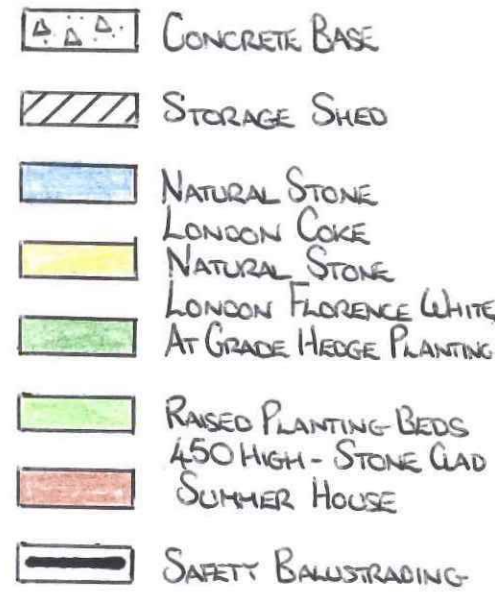 CONCRETE BASE
STORAGE SHED
NATURAL STONE
LONDON COKE
NATURAL STONE
LONDON FLORENCE WHITE
AT GRADE HEDGE PLANTING
RAISED PLANTING BEDS
450 HIGH - STONE CLAD
SUMMER HOUSE
SAFETY BALUSTRADING